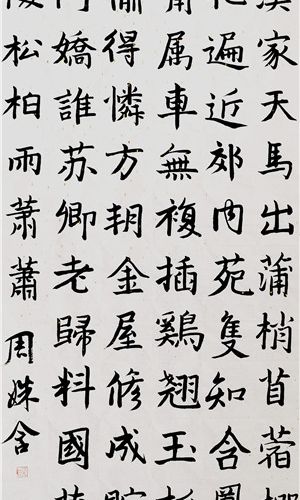 漢家天馬出蒲梢苜蓿榴
花遍近郊内苑隻知含鳳
属車無複插鷄翹玉桃
偷得憐方朔金屋修成貯
嬌誰苏卿老歸料國茂
陵松柏雨蕭蕭 周姝含